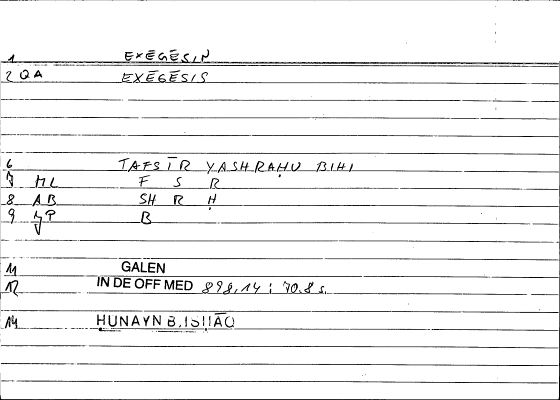 1 EXĒGĒSIN
2 QA EXĒGĒSIS
6 TAFSĪR YASHRAḤU BIHI
7 ML F S R
8 AB SH R Ḥ
9 B
11 GALEN
12 IN DE OFF MED 898,14 : 70.8 s.
14 ḤUNAYN B. ISḤĀQ